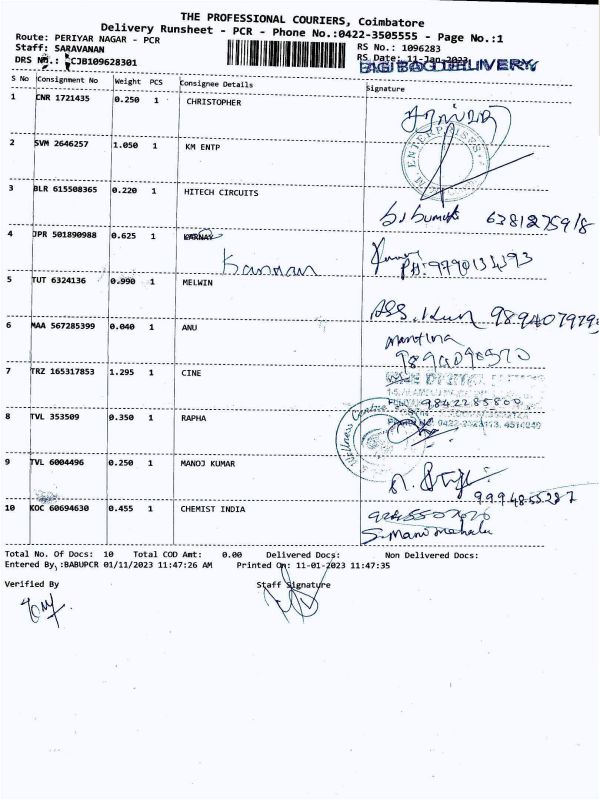 THE PROFESSIONAL COURIERS, Coimbatore
Delivery Runsheet - PCR - Phone No.:0422-3505555 - Page No.:1
Route: PERIYAR NAGAR - PCR
RS No.: 1096283
Staff: SARAVANAN
RS Date: 11-Jan-2023
DRS No.: CJB109628301
BIG BAG DELIVERY
S No Consignment No Weight PCS Consignee Details Signature
1 CNR 1721435 0.250 1 CHRISTOPHER
2 SVM 2646257 1.050 1 KM ENTP
ENTERPRISES
3 BLR 615508365 0.220 1 HITECH CIRCUITS
6381275918
4 JPR 501890988 0.625 1 KARNAY
Kannan
5 TUT 6324136 0.990 1 MELWIN
6 MAA 567285399 0.040 1 ANU
7 TRZ 165317853 1.295 1 CINE
9842285800
8 TVL 353509 0.350 1 RAPHA
Wellness Centre
9 TVL 6004496 0.250 1 MANOJ KUMAR
9994855287
10 KOC 60694630 0.455 1 CHEMIST INDIA
Total No. Of Docs: 10 Total COD Amt: 0.00 Delivered Docs: Non Delivered Docs:
Entered By,:BABUPCR 01/11/2023 11:47:26 AM Printed On: 11-01-2023 11:47:35
Verified By Staff Signature